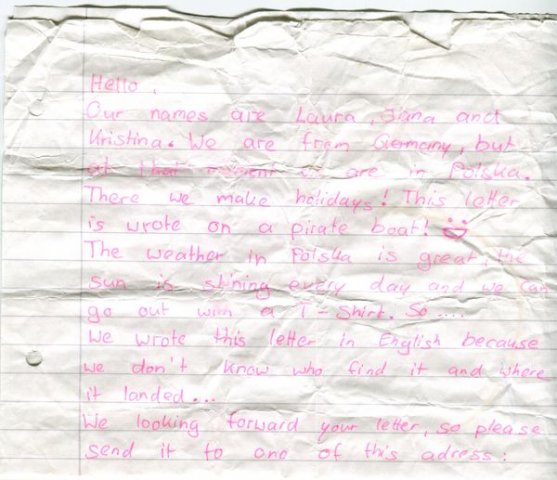 Hello,
Our names are Laura, Jana and
Kristina. We are from Germany, but
at that moment we are in Polska.
There we make holidays! This letter
is wrote on a pirate boat!
The weather in Polska is great, the
sun is shining every day and we can
go out with a T-Shirt. So ....
We wrote this letter in English because
we don't know who find it and where
it landed...
We looking forward your letter, so please
send it to one of this adress: